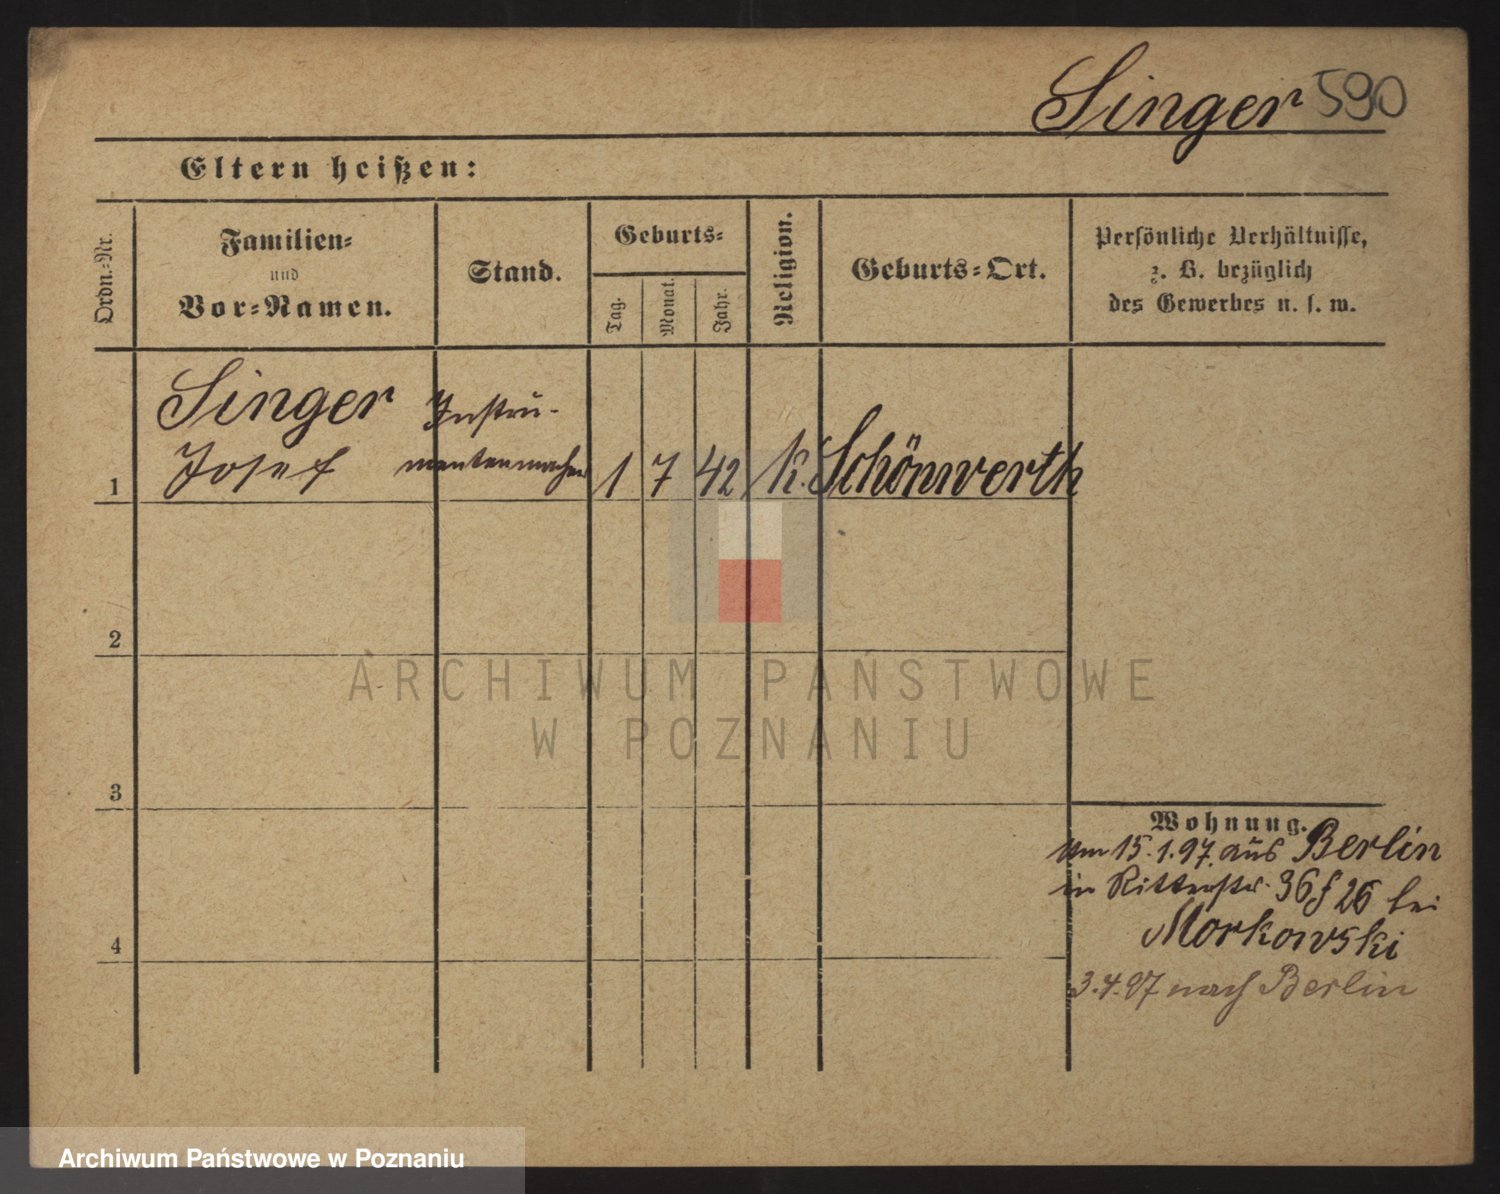 Singer 590
Eltern heißen:
Ordn.=Nr.
Familien=
und
Vor=Namen.
Stand.
Geburts=
Tag.
Monat.
Jahr.
Religion.
Geburts=Ort.
Persönliche Verhältnisse,
z. B. bezüglich
des Gewerbes u. s. w.
Singer
Josef
Instru-
mentenmacher
1 7 42 k. Schönwerth
1
2
3
4
Wohnung.
Am 15.1.97. aus Berlin
in Ritterstr. 36 f 26 bei
Morkowski
3.4.97 nach Berlin
ARCHIWUM PAŃSTWOWE
W POZNANIU
Archiwum Państwowe w Poznaniu